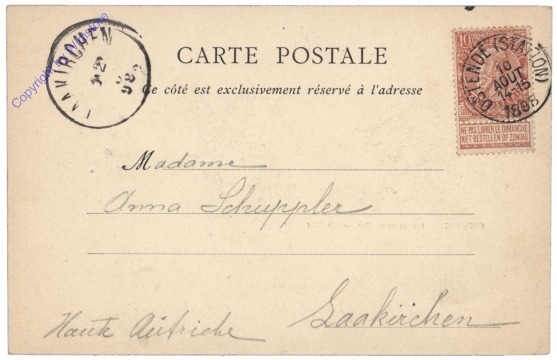 CARTE POSTALE
Ce côté est exclusivement réservé à l'adresse
LAAKIRCHEN
10
OSTENDE (STATION)
AOUT
14-15
NE PAS LIVRER LE DIMANCHE
NIET BESTELLEN OP ZONDAG
Madame
Anna Schuppler
Laakirchen
Haute Aûtriche